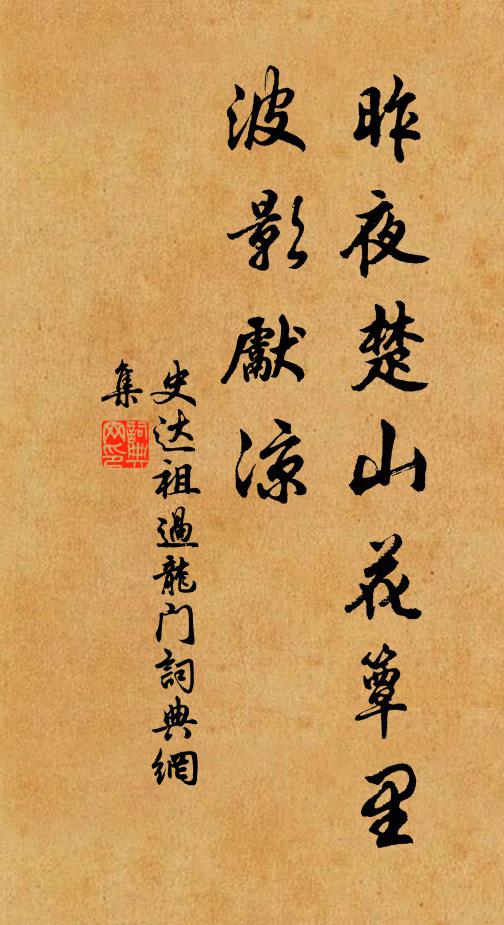 昨夜楚山花簟里
波影獻凉
史达祖過龍门詞典網
集
詞典网印